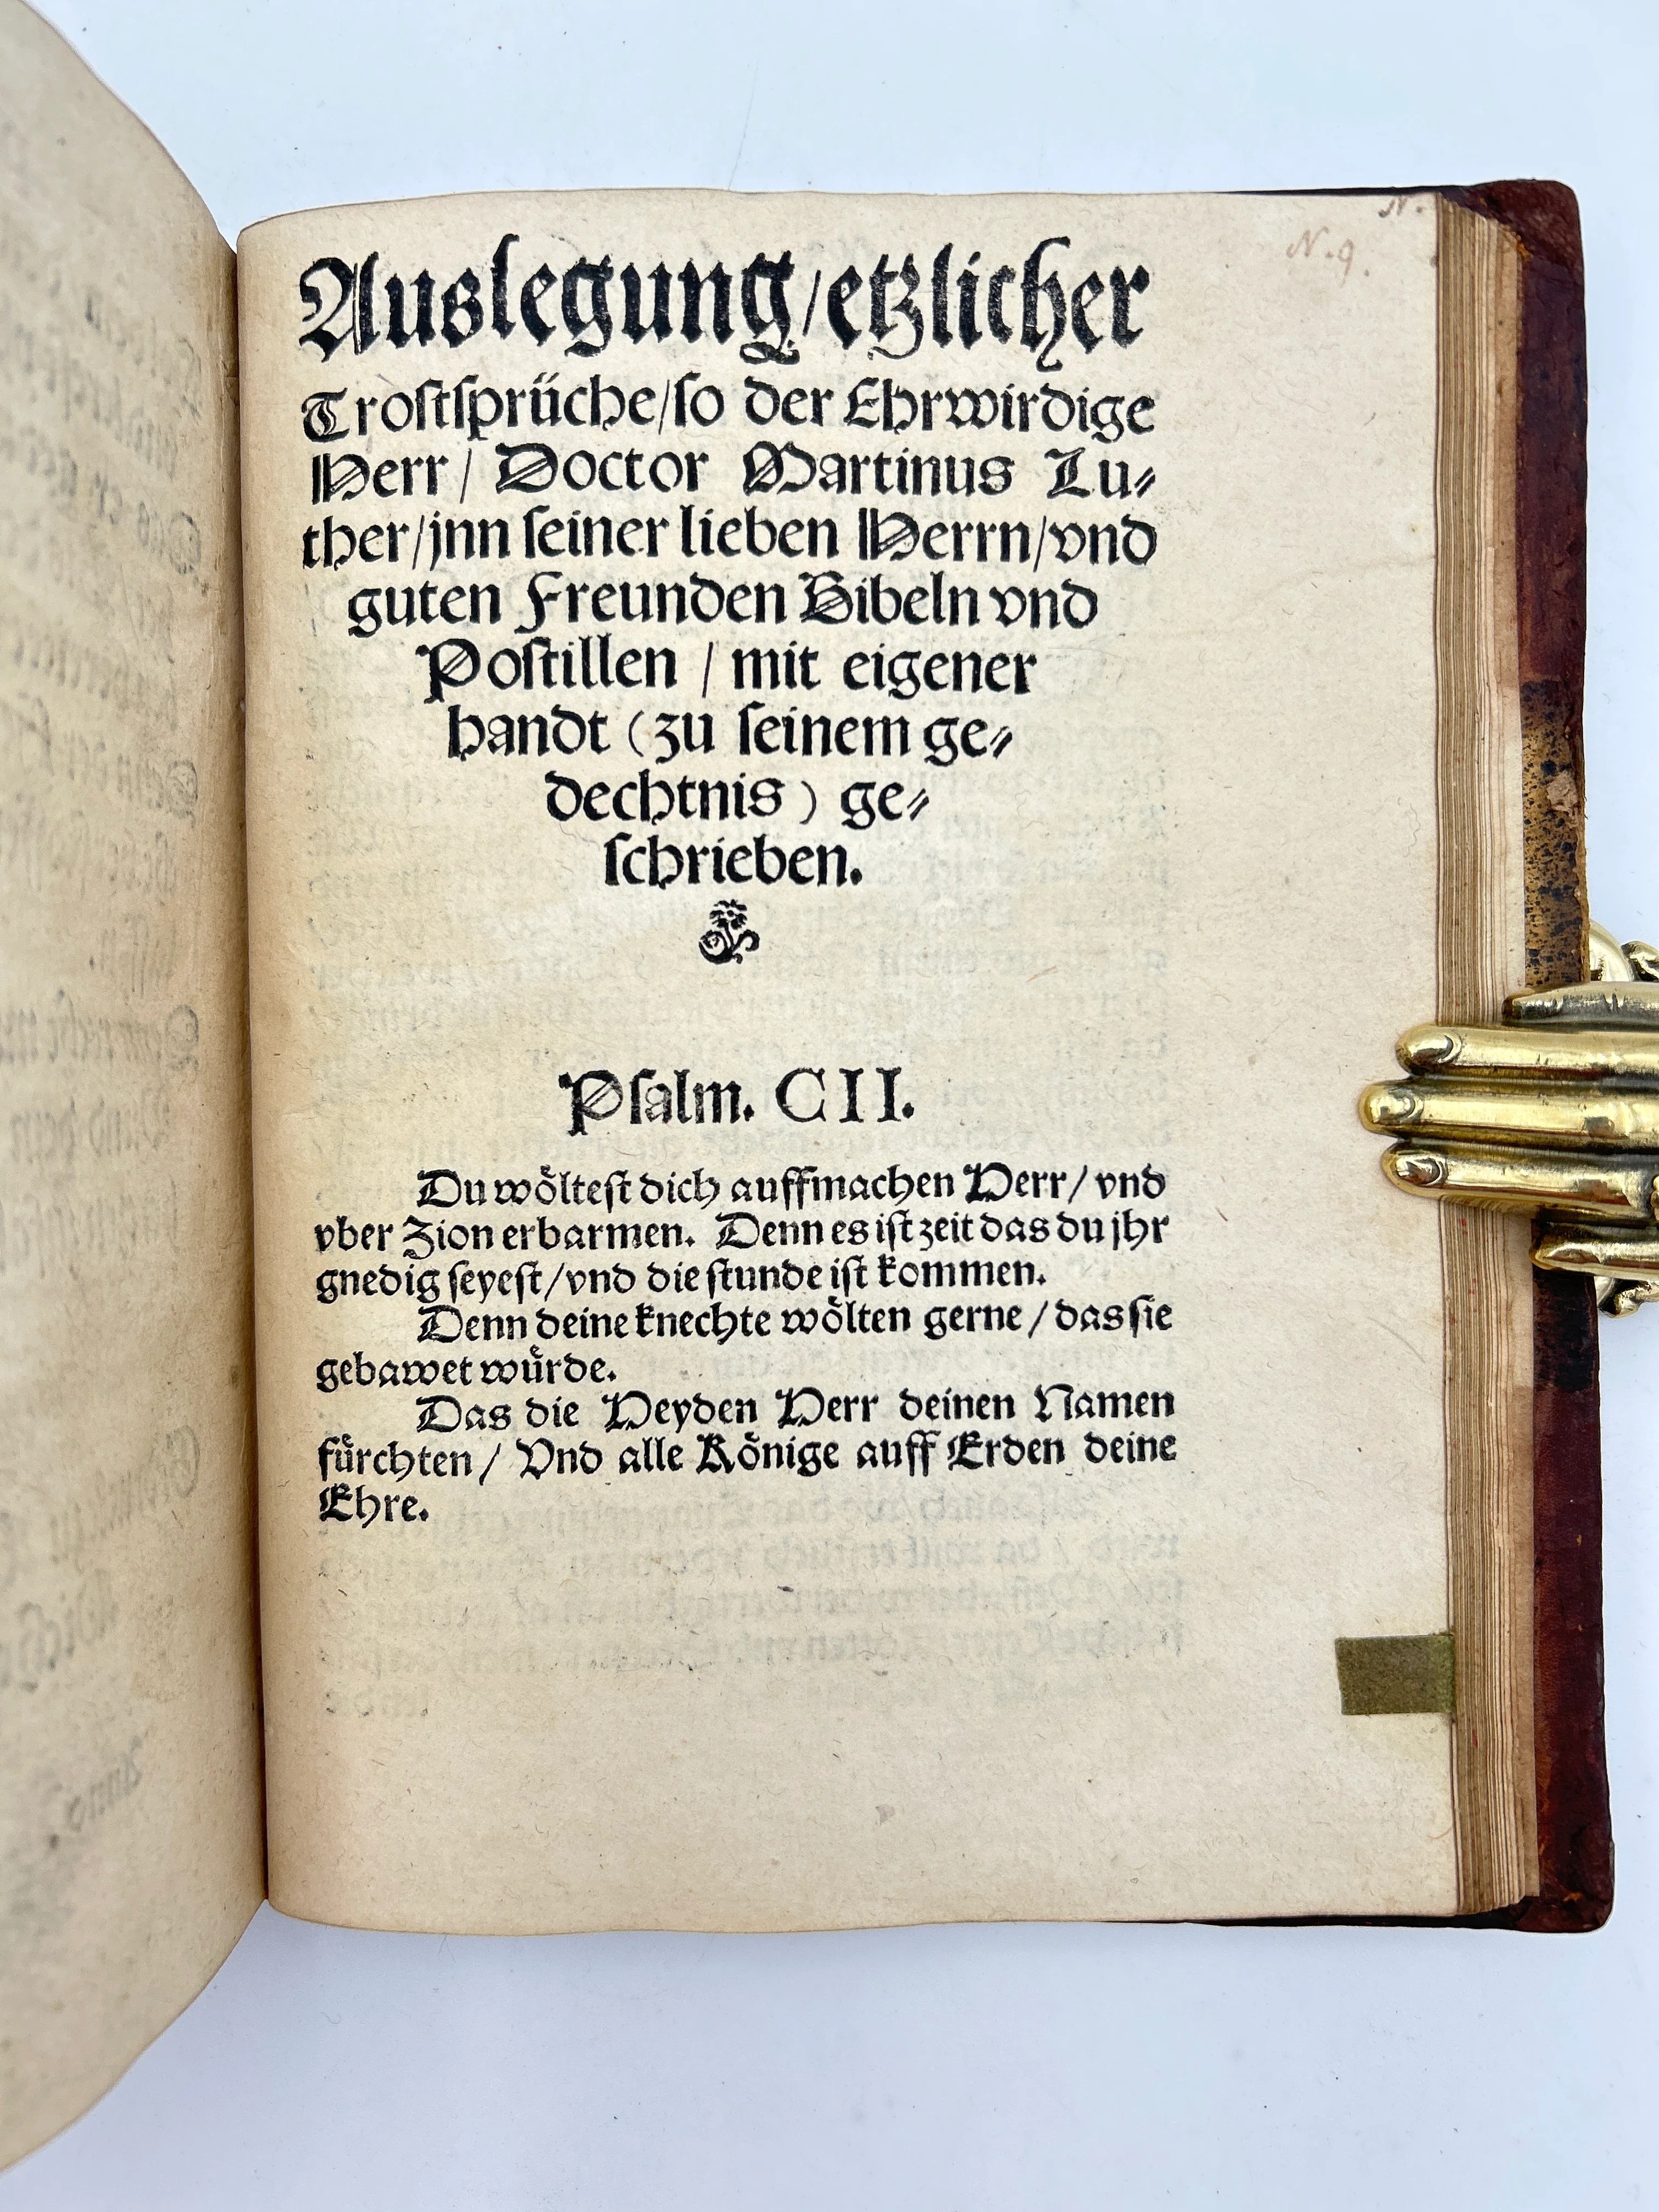 N.
N. 9.
Auslegung/etzlicher
Trostsprüche/so der Ehrwirdige
Herr/ Doctor Martinus Lu⸗
ther/jnn seiner lieben Herrn/vnd
guten Freunden Bibeln vnd
Postillen / mit eigener
handt (zu seinem ge⸗
dechtnis) ge⸗
schrieben.
Psalm. CII.
Du wöltest dich auffmachen Herr/ vnd
vber Zion erbarmen. Denn es ist zeit das du jhr
gnedig seyest/vnd die stunde ist kommen.
Denn deine knechte wölten gerne / das sie
gebawet würde.
Das die Heyden Herr deinen Namen
fürchten/ Vnd alle Könige auff Erden deine
Ehre.